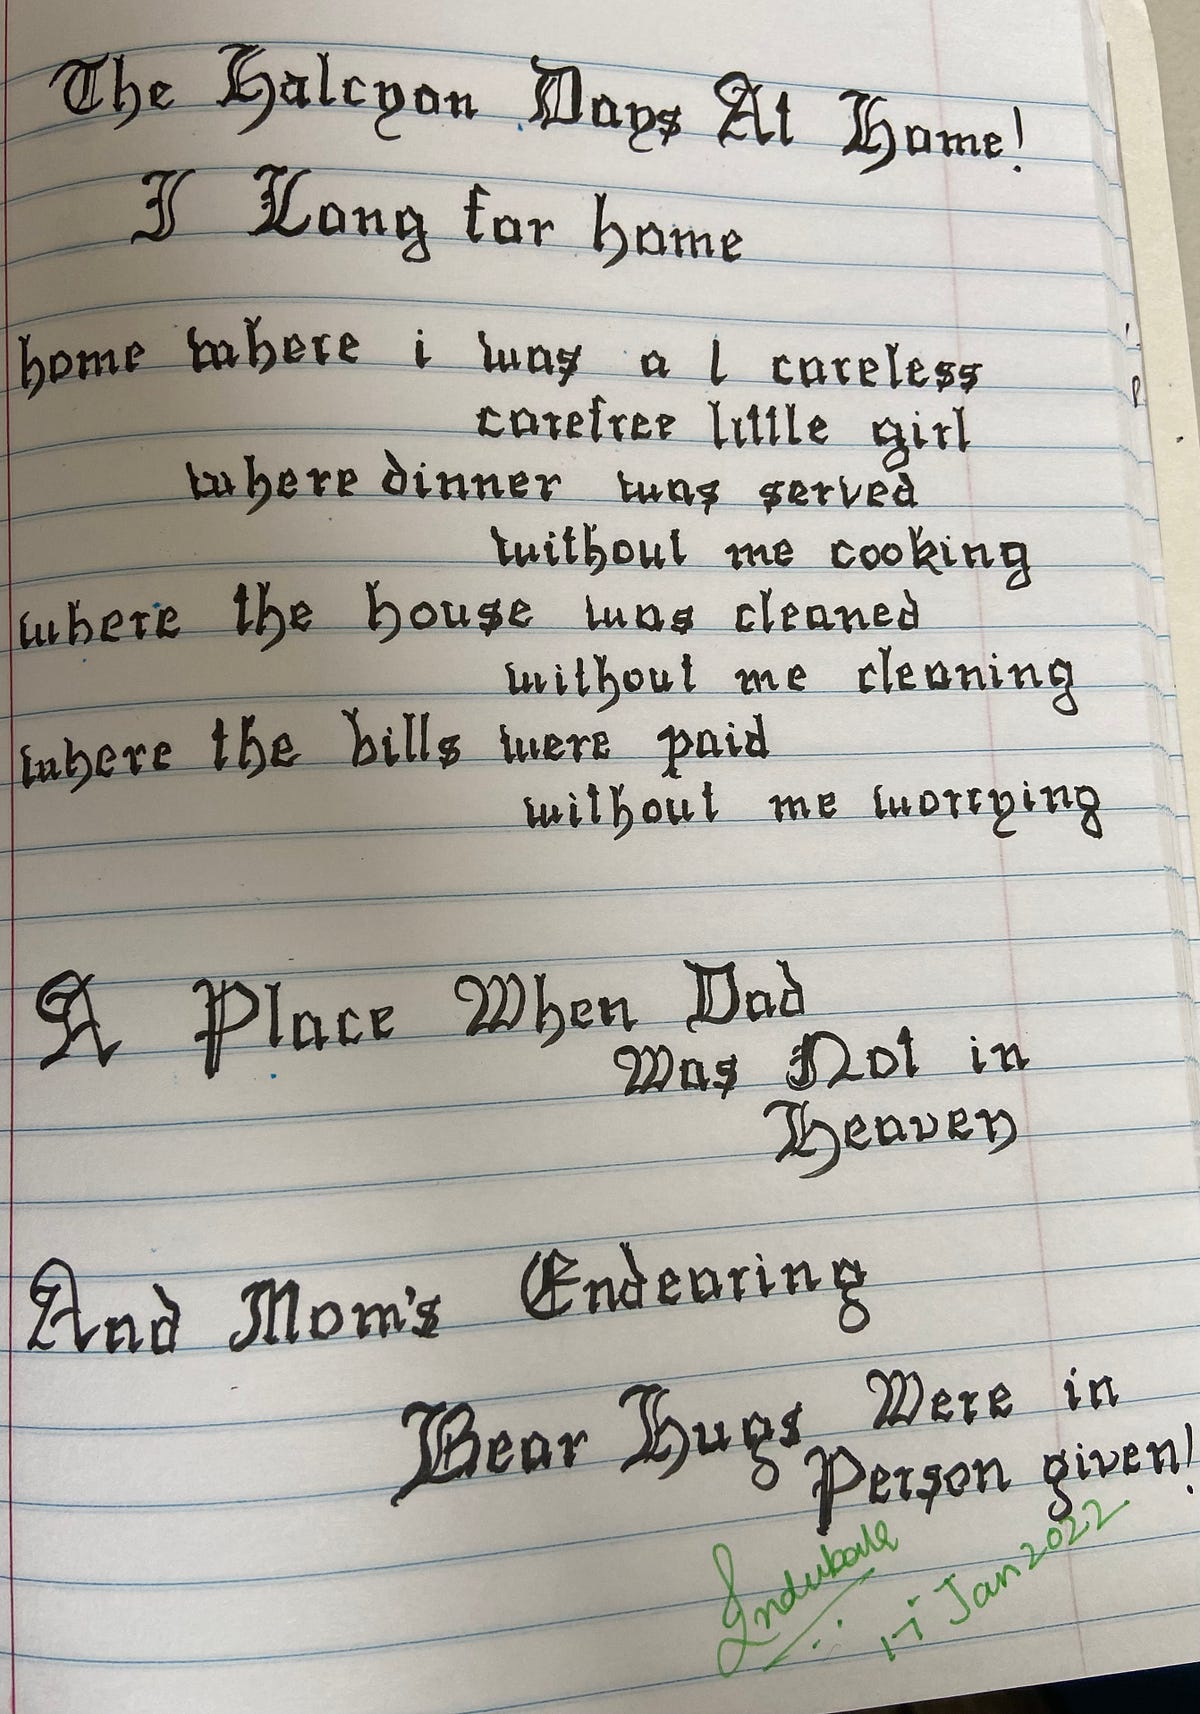 The Halcyon Days At Home!
I Long for home
home where i was a l careless
carefree little girl
where dinner was served
without me cooking
where the house was cleaned
without me cleaning
where the bills were paid
without me worrying
A Place When Dad
Was Not in
Heaven
And Mom's Endearing
Bear Hugs Were in
Person given!
17 Jan 2022